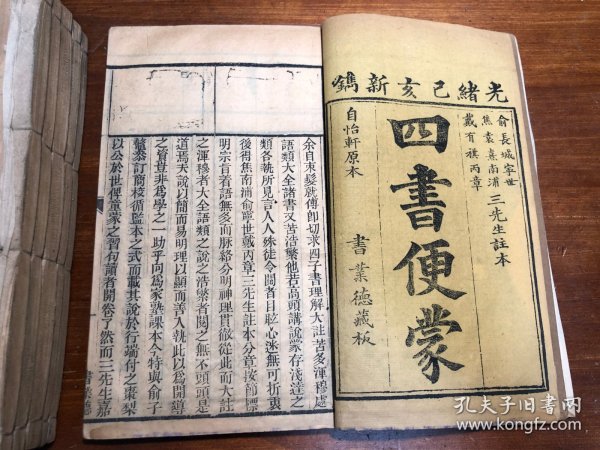 光緒己亥新鐫
俞長城寧世
焦袁熹南浦三先生註本
戴有祺丙章
四書便蒙
自怡軒原本
書業德藏板
余自束髮就傅即切求四子書理解大註苦多渾穆處
語類大全諸書又苦浩繁他若高頭講說蒙存淺達之
類各執所見言人人殊徒令閱者目眩心迷無可折衷
後得焦南浦俞寧世戴丙章三先生註本分章按節標
明宗旨着語無多而脉絡分明神理貫徹從此而大註
之渾穆者大全語類之說之浩繁者閱之無不頭頭是
道焉夫說以簡而易明理以顯而善入執此以為開導
之資豈非為學之一助乎向爲家塾課本今特與俞子
參訂簡校循監本之式而載其說於行端付之棗梨
以公於世俾童蒙之習句讀者開卷了然而三先生嘉
書業德
孔夫子旧书网
www.kongfz.com